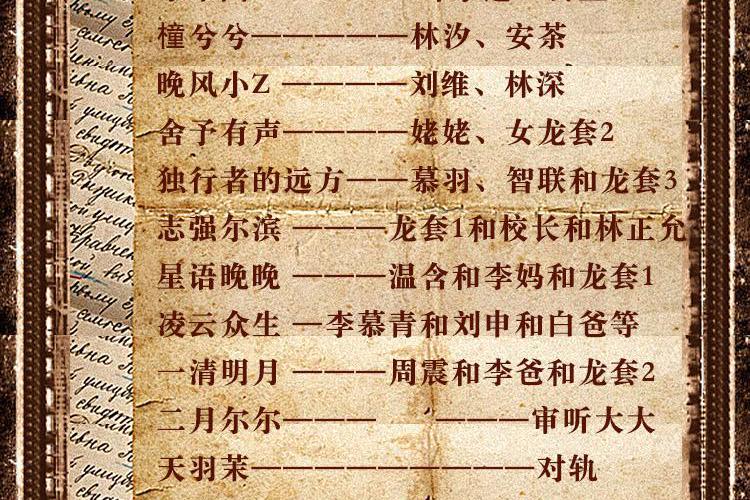 橦兮兮—————林汐、安茶
晚风小Z ————刘维、林深
舍予有声————姥姥、女龙套2
独行者的远方——慕羽、智联和龙套3
志强尔滨 ———龙套1和校长和林正允
星语晚晚 ———温含和李妈和龙套1
凌云众生 —李慕青和刘申和白爸等
一清明月 ———周震和李爸和龙套2
二月尔尔——— ———审听大大
天羽茉—————————对轨